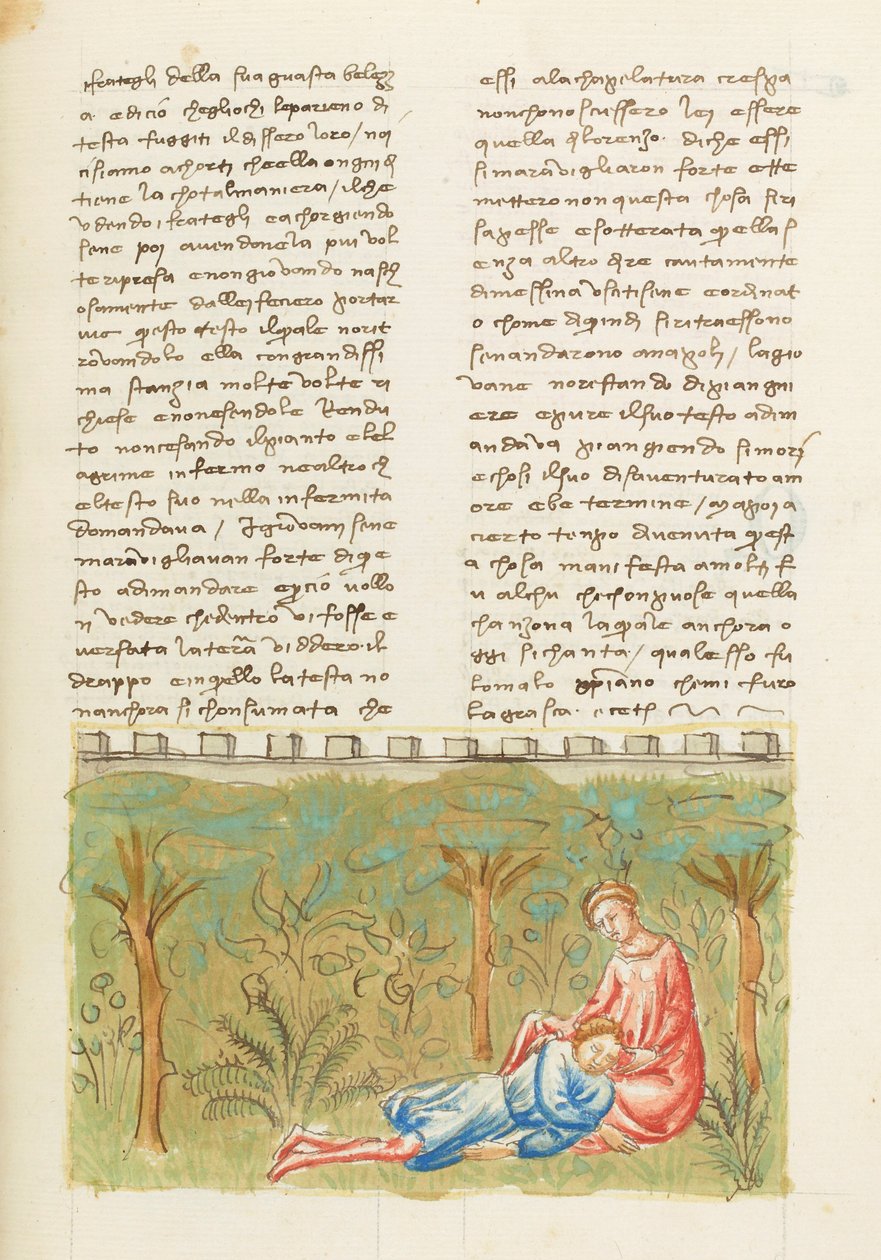 i frategli della sua guasta belez
a· e dicio che gliochi le parieno di
testa fuggiti il dissero loro / noi
ci siamo achorti che ella ongni di
tiene la chotal maniera / il che
udendo i frategli e achorgiendo
sene poi avendonela piu vol
te ripresa e non giovando nasch
osamente da llei feciero portar
via questo testo il quale no rit
rovandolo ella con grandissi
ma stanzia molte volte ri
chiese e nonesendole rendu
to non cesando il pianto e lel
agrime infermo ne altro ch
el testo suo nella infermita
domandava / I giovani sene
maravigliavan forte di que
sto adimandare e percio vollo
n vedere che dentro vi fosse e
versata la terra viddero· il
drappo e in quello la testa no
nanchora si chonsumata che
essi ala chapelatura crespa
non chonoscessero lei essere
quella di lorenzo· di che essi
si maravigliaron forte ette
mettero non questa chosa si ri
sapesse e sotterata quella s
enza altro dire cautamente
di messina uscitisene e ordinat
o chome di quindi si ritraessono
se nandarono a napoli / la gio
vane no restando di piangni
ere e pure il suo testo adim
andava piangiendo si mori
e chosi il suo disaventurato am
ore ebe termine / Ma poi a
cierto tenpo divenuta quest
a chosa manifesta a molti f
u alchu che chonpuose quella
chanzona la quale anchora o
ggi si chanta· / quale sso fu
lo malo cristiano che mi furo
la grasca· e cetera